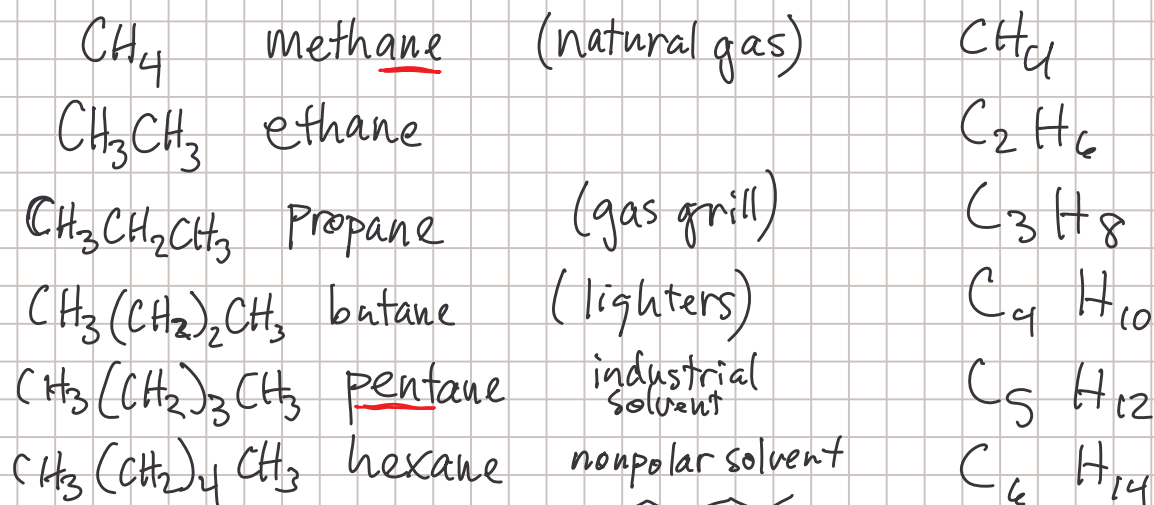 CH₄ methane (natural gas) CH₄
CH₃CH₃ ethane C₂H₆
CH₃CH₂CH₃ propane (gas grill) C₃H₈
CH₃(CH₂)₂CH₃ butane (lighters) C₄ H₁₀
CH₃(CH₂)₃CH₃ pentane industrial solvent C₅ H₁₂
CH₃(CH₂)₄CH₃ hexane nonpolar solvent C₆ H₁₄